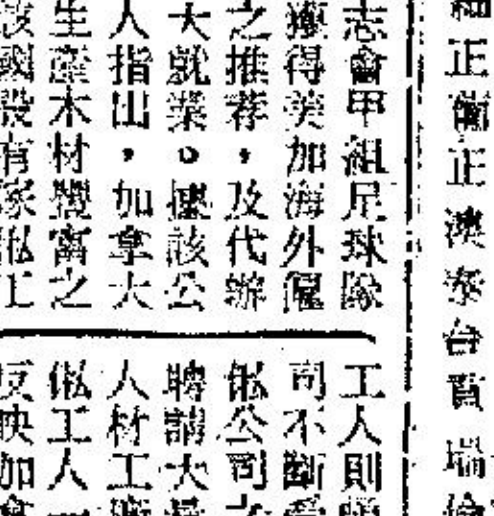 正衞正澳泰台賈瑞
志會甲組足球隊
獲得美加海外
之推荐，及代辦
大就業。據該公
人指出，加拿大
生產木材豐富之
國設有家俬工
工人則
司不斷
俬公司
聘請大量
人材工廠
俬工人一
反映加